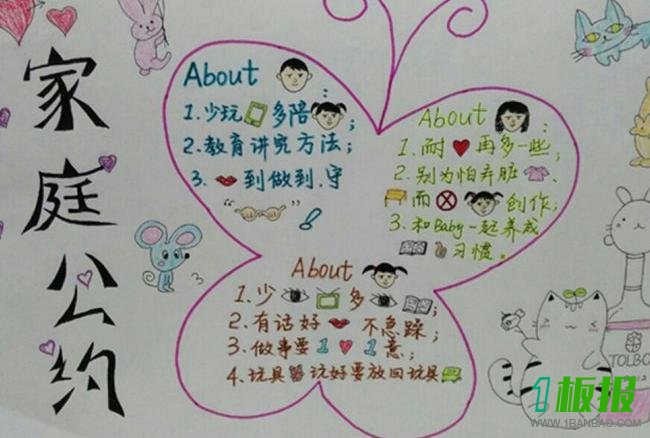 家庭公约
About :
1.少玩 多陪 ;
2.教育讲究方法;
3. 到做到.守
!
About :
1.耐 再多一些;
2.别为怕弄脏 、
而 创作;
3.和Baby一起养成
习惯。
About :
1.少 多 ;
2.有话好 不急躁;
3.做事要1 1意;
4.玩具 玩好要放回玩具
TOLBO
1板报
WWW.1BANBAO.COM